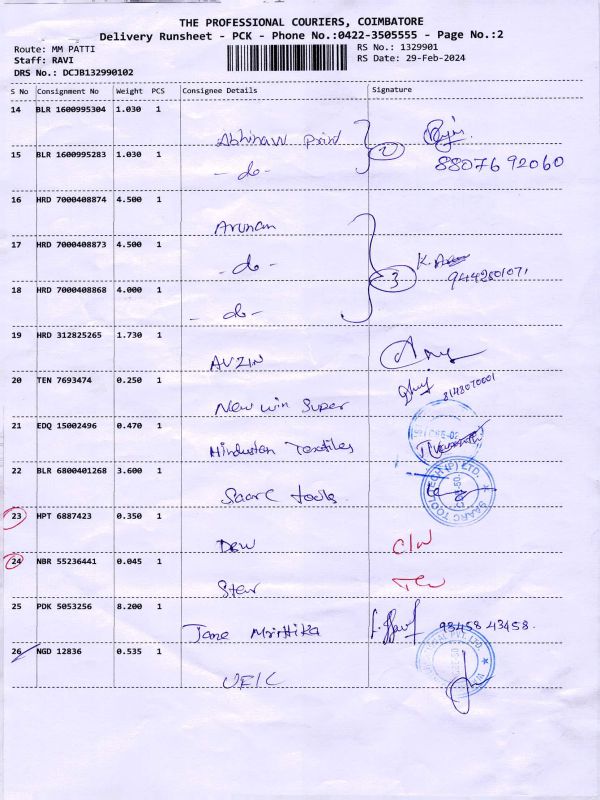 THE PROFESSIONAL COURIERS, COIMBATORE
Delivery Runsheet - PCK - Phone No.:0422-3505555 - Page No.:2
Route: MM PATTI
RS No.: 1329901
Staff: RAVI
RS Date: 29-Feb-2024
DRS No.: DCJB132990102
S No Consignment No Weight PCS Consignee Details Signature
14 BLR 1600995304 1.030 1
Abhinav Print
15 BLR 1600995283 1.030 1
2
88076 92060
- do -
16 HRD 7000408874 4.500 1
Arunan
17 HRD 7000408873 4.500 1
- do -
K.
3
18 HRD 7000408868 4.000 1
- do -
19 HRD 312825265 1.730 1
AVZIN
20 TEN 7693474 0.250 1
8148070001
New win Super
21 EDQ 15002496 0.470 1
Hindustan Textiles
22 BLR 6800401268 3.600 1
Saarc tools
SAARC TOOL TECH (P) LTD.
23 HPT 6887423 0.350 1
DEW C/N
24 NBR 55236441 0.045 1
Star
25 PDK 5053256 8.200 1
Jane 98458 43458.
26 NGD 12836 0.535 1
PVT LTD
UEIC